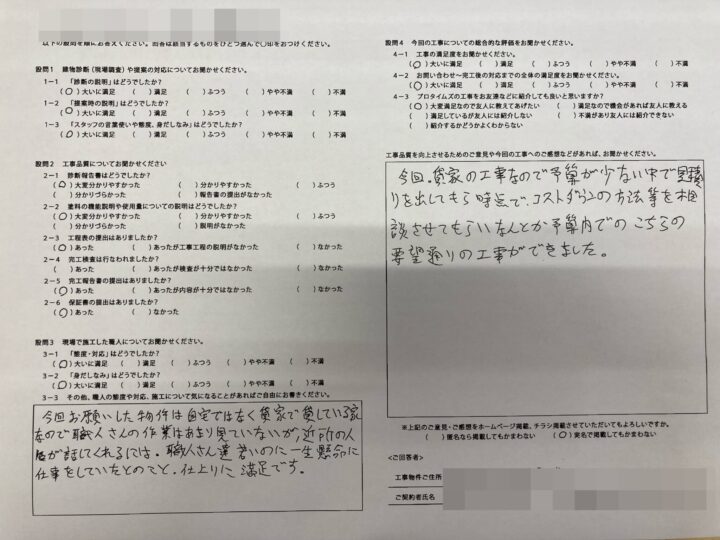 以下の設問を順にお答えください。回答は該当するものをひとつ選んで〇印をおつけください。
設問1 建物診断(現場調査)や提案の対応についてお聞かせください。
1-1 「診断の説明」はどうでしたか?
(○)大いに満足 ( )満足 ( )ふつう ( )やや不満 ( )不満
1-2 「提案時の説明」はどうでしたか?
(○)大いに満足 ( )満足 ( )ふつう ( )やや不満 ( )不満
1-3 「スタッフの言葉使いや態度、身だしなみ」はどうでしたか?
(○)大いに満足 ( )満足 ( )ふつう ( )やや不満 ( )不満
設問2 工事品質についてお聞かせください
2-1 診断報告書はどうでしたか?
(○)大変分かりやすかった ( )分かりやすかった ( )ふつう
( )分かりづらかった ( )報告書の提出がなかった
2-2 塗料の機能説明や使用量についての説明はどうでしたか?
(○)大変分かりやすかった ( )分かりやすかった ( )ふつう
( )分かりづらかった ( )説明がなかった
2-3 工程表の提出はありましたか?
(○)あった ( )あったが工事工程の説明がなかった ( )なかった
2-4 完工検査は行なわれましたか?
( )あった ( )あったが検査が十分ではなかった ( )なかった
2-5 完工報告書の提出はありましたか?
(○)あった ( )あったが内容が十分ではなかった ( )なかった
2-6 保証書の提出はありましたか?
(○)あった ( )なかった
設問3 現場で施工した職人についてお聞かせください。
3-1 「態度・対応」はどうでしたか?
(○)大いに満足 ( )満足 ( )ふつう ( )やや不満 ( )不満
3-2 「身だしなみ」はどうでしたか?
(○)大いに満足 ( )満足 ( )ふつう ( )やや不満 ( )不満
3-3 その他、職人の態度や対応、施工について気になることがあればご自由にお書きください。
今回お願いした物件は自宅ではなく貸家で貸している家
なので職人さんの作業はあまり見ていないが、近所の人
が話してくれるには。職人さん達暑いのに一生懸命に
仕事をしていたとのこと。仕上りに満足です。
設問4 今回の工事についての総合的な評価をお聞かせください。
4-1 工事の満足度をお聞かせください。
(○)大いに満足 ( )満足 ( )ふつう ( )やや不満 ( )不満
4-2 お問い合わせ~完工後の対応までの全体の満足度をお聞かせください。
(○)大いに満足 ( )満足 ( )ふつう ( )やや不満 ( )不満
4-3 プロタイムズの工事をお友達などに紹介しても良いと思いますか?
(○)大変満足なので友人に教えてあげたい ( )満足なので機会があれば友人に教える
( )満足しているが友人には紹介しない ( )不満があり友人には紹介できない
( )紹介するかどうかよくわからない
工事品質を向上させるためのご意見や今回の工事へのご感想などがあれば、お聞かせください。
今回、貸家の工事なので予算が少ない中で見積
りを出してもらう時点で、コストダウンの方法等を相
談させてもらいなんとか予算内でのこちらの
要望通りの工事ができました。
※上記のご意見・ご感想をホームページ掲載、チラシ掲載させていただいてもよろしいですか。
( )匿名なら掲載してもかまわない (○)実名で掲載してもかまわない
<ご回答者>
工事物件ご住所
ご契約者氏名